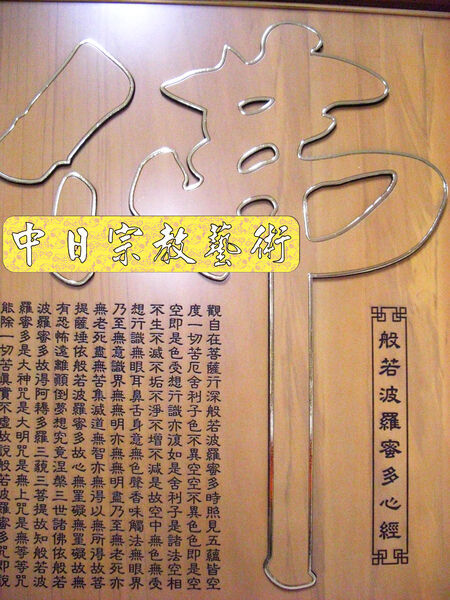 佛
中日宗教藝術
般若波羅蜜多心經
觀自在菩薩行深般若波羅蜜多時照見五蘊皆空
度一切苦厄舍利子色不異空空不異色色即是空
空即是色受想行識亦復如是舍利子是諸法空相
不生不滅不垢不淨不增不減是故空中無色無受
想行識無眼耳鼻舌身意無色聲香味觸法無眼界
乃至無意識界無無明亦無無明盡乃至無老死亦
無老死盡無苦集滅道無智亦無得以無所得故菩
提薩埵依般若波羅蜜多故心無罣礙無罣礙故無
有恐怖遠離顛倒夢想究竟涅槃三世諸佛依般若
波羅蜜多故得阿耨多羅三藐三菩提故知般若波
羅蜜多是大神咒是大明咒是無上咒是無等等咒
能除一切苦真實不虛故說般若波羅蜜多咒即說